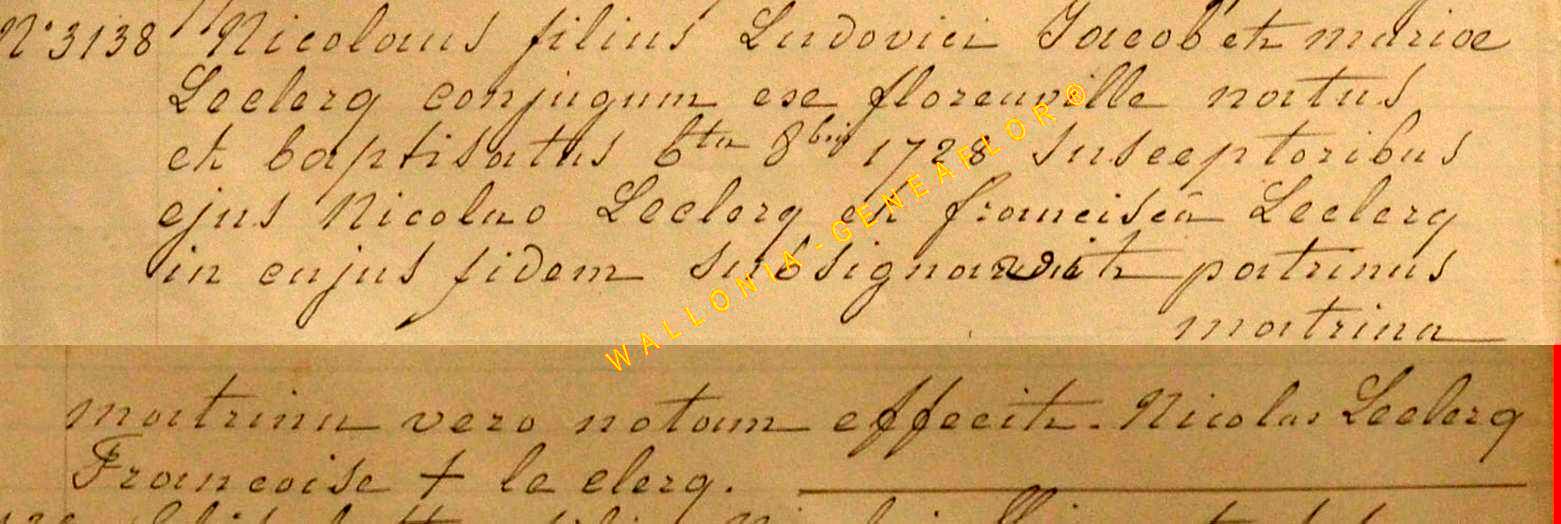 N° 3138 Nicolaus filius Ludovici Jacob et mariae
Leclerq conjugum ex florenville natus
et baptisatus 6ta 8bris 1728 susceptoribus
ejus Nicolao Leclerq et francisca Leclerq
in cujus fidem subsignavit patrinus
matrina
matrina vero notam effecit. Nicolas Leclerq
Francoise + le clerq.
WALLONIA-GENEAFLOR®